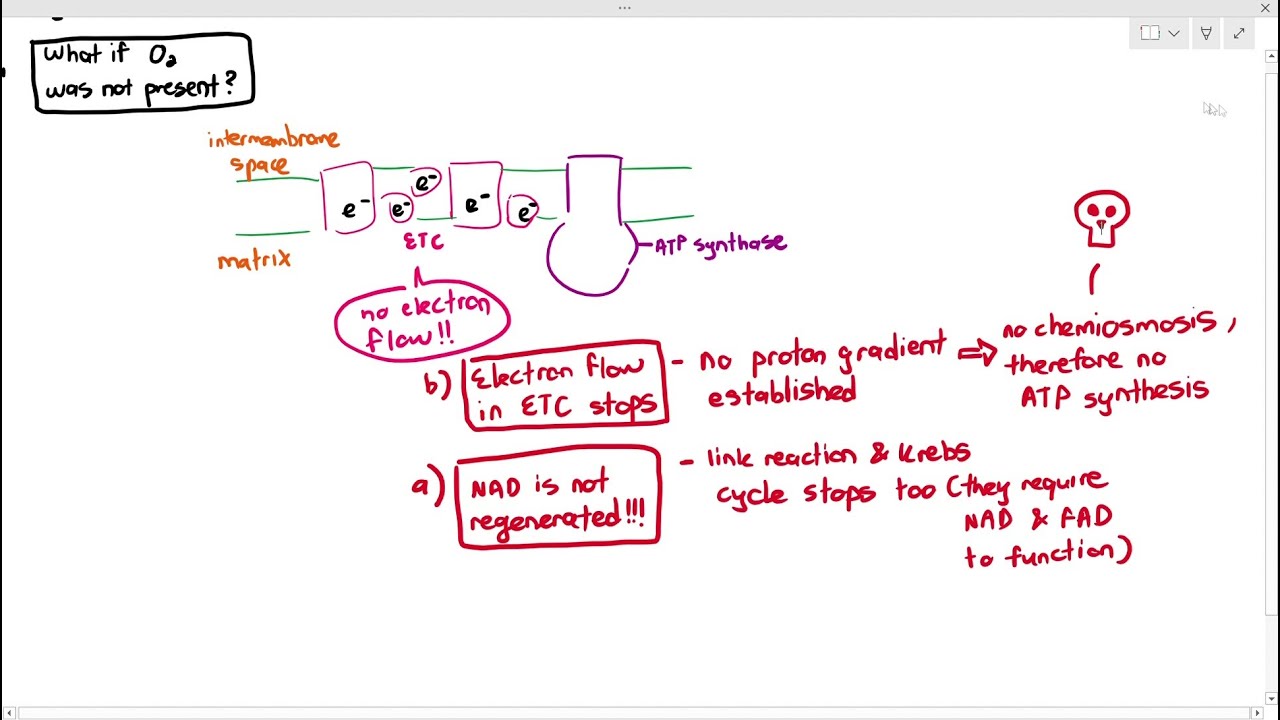 What if O₂
was not present?
intermembrane
space
e⁻
e⁻
e⁻
e⁻
e⁻
ETC
matrix
ATP synthase
no electron
flow!!
b) Electron flow
in ETC stops
- no proton gradient
established
⇒ no chemiosmosis,
therefore no
ATP synthesis
a) NAD is not
regenerated!!!
- link reaction & Krebs
cycle stops too (they require
NAD & FAD
to function)